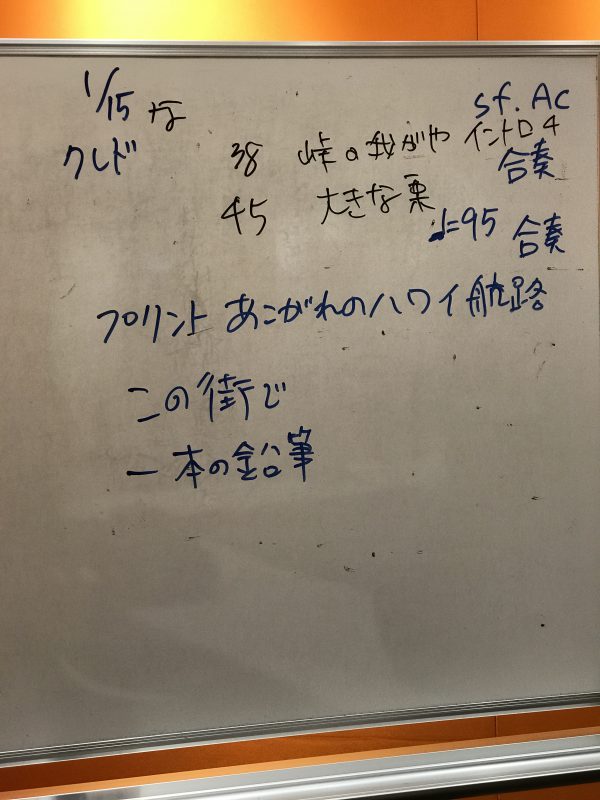 1/15 な sf. Ac
クレド 38 峠の我がや イントロ4 合奏
45 大きな栗 ♩=95 合奏
プリント あこがれのハワイ航路
この街で
一本の鉛筆